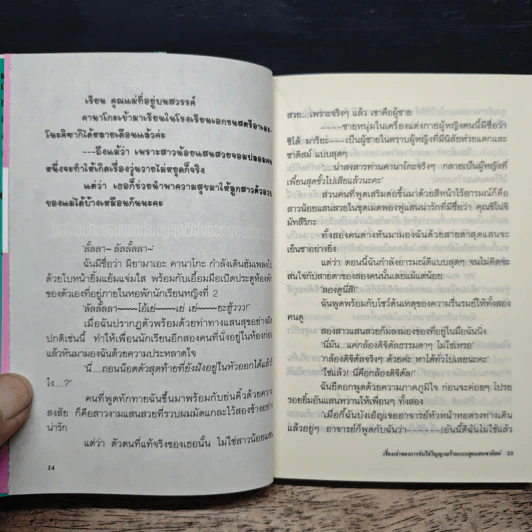 เรียน คุณแม่ที่อยู่บนสวรรค์
คานาโกะเข้ามาเรียนในโรงเรียนเอกชนสตรีอาเมะ
โนะคิซากิได้หลายเดือนแล้วค่ะ
---ถึงแม้ว่า เพราะสาวน้อยแสนสวยจอมปลอมคน
หนึ่งจะทำให้เกิดเรื่องวุ่นวายไม่หยุดก็จริง
แต่ว่า เธอก็ช่วยนำพาความสุขมาให้ลูกสาวตัวน้อย
ของแม่ได้บ้างเหมือนกันนะคะ
"ลัลลา~ ลัลลั้ลลา~"
ฉันมีชื่อว่า มิยามาเอะ คานาโกะ กำลังเดินฮัมเพลงไป
ด้วยใบหน้ายิ้มแย้มแจ่มใส พร้อมกับเอื้อมมือเปิดประตูห้อง
ของตัวเองที่อยู่ภายในหอพักนักเรียนหญิงที่ 2
เมื่อฉันปรากฏตัวพร้อมด้วยท่าทางแสนสุขอย่าง
ปกติเช่นนี้ ทำให้เพื่อนนักเรียนอีกสองคนที่นั่งอยู่ในห้องก่อน
แล้วหันมามองฉันด้วยความประหลาดใจ
"นี่...ถอนน็อตตัวสุดท้ายที่ยังฝังอยู่ในหัวออกได้แล้ว
ไง...?"
คนที่พูดทักทายฉันขึ้นมาพร้อมกับย่นคิ้วด้วยความ
สงสัย ก็คือสาวงามแสนสวยที่รวบผมมัดแกละไว้สองข้างอย่าง
น่ารัก
แต่ว่า ตัวตนที่แท้จริงของเธอนั้น ไม่ใช่สาวน้อยแสน
14
สวย เพราะจริงๆ แล้ว เขาคือผู้ชาย
---ชายหนุ่มในเครื่องแต่งกายผู้หญิงคนนี้มีชื่อว่า
ชิโด้ มาริยะ---เป็นผู้ชายในคราบผู้หญิงที่มีนิสัยห่วยแตกและ
ซาดิสม์ แบบสุดๆ
น่าสงสารท่านคานาโกะจริงๆ กลายเป็นผู้หญิงที่
เพี้ยนสุดขั้วไปเสียแล้วนะคะ"
ส่วนคนที่พูดเสริมต่อขึ้นมาด้วยสีหน้าไร้อารมณ์ก็คือ
สาวน้อยแสนสวยในชุดเมดพองฟูแสนน่ารักที่มีชื่อว่า คุณชิโนจิ
มัทสึริกะ
ทั้งสองคนต่างหันมามองฉันด้วยสายตาสุดแสนจะ
เย็นชาอย่างยิ่ง
แต่ว่า ตอนนี้ฉันกำลังอารมณ์ดีแบบสุดๆ จนไม่คิดจะ
สนใจกับสายตาของสองคนนั้นเลยแม้แต่น้อย
"ลองดูนี่สิ!"
ฉันพูดพร้อมกับโชว์ต้นเหตุของความรื่นรมย์ให้ทั้งสอง
คนดู
สองสาวแสนสวยก้มลงมองของที่อยู่ในมือฉันนิ่ง
"นี่มัน...แค่กล้องดิจิตัลธรรมดาๆ ไม่ใช่เหรอ"
"กล้องดิจิตัลจริงๆ ด้วยค่ะ หาได้ทั่วไปเลยนะคะ"
"ใช่แล้ว! นี่คือกล้องดิจิตัล!"
ฉันยืดอกพูดด้วยความภาคภูมิใจ ก่อนจะค่อยๆ โปรย
รอยยิ้มอันแสนหวานให้เพื่อนๆ ทั้งสอง
"เมื่อกี้ฉันบังเอิญเจออาจารย์หัวหน้าหอตรงทางเดิน
แล้วอยู่ๆ อาจารย์ก็พูดกับฉันว่า---
15